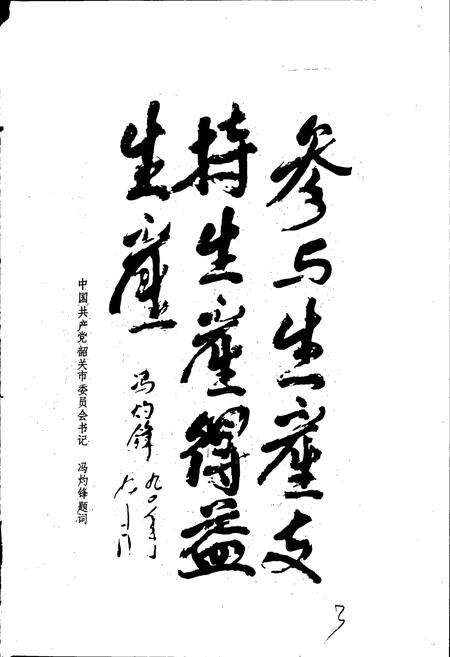 参与生产支
持生产得益
生产
冯灼锋 九〇年
中国共产党韶关市委员会书记 冯灼锋题词
3